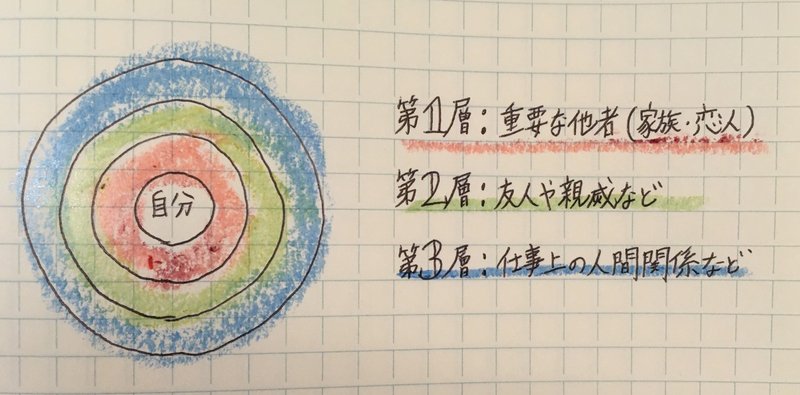 自分
第1層：重要な他者（家族・恋人）
第2層：友人や親戚など
第3層：仕事上の人間関係など